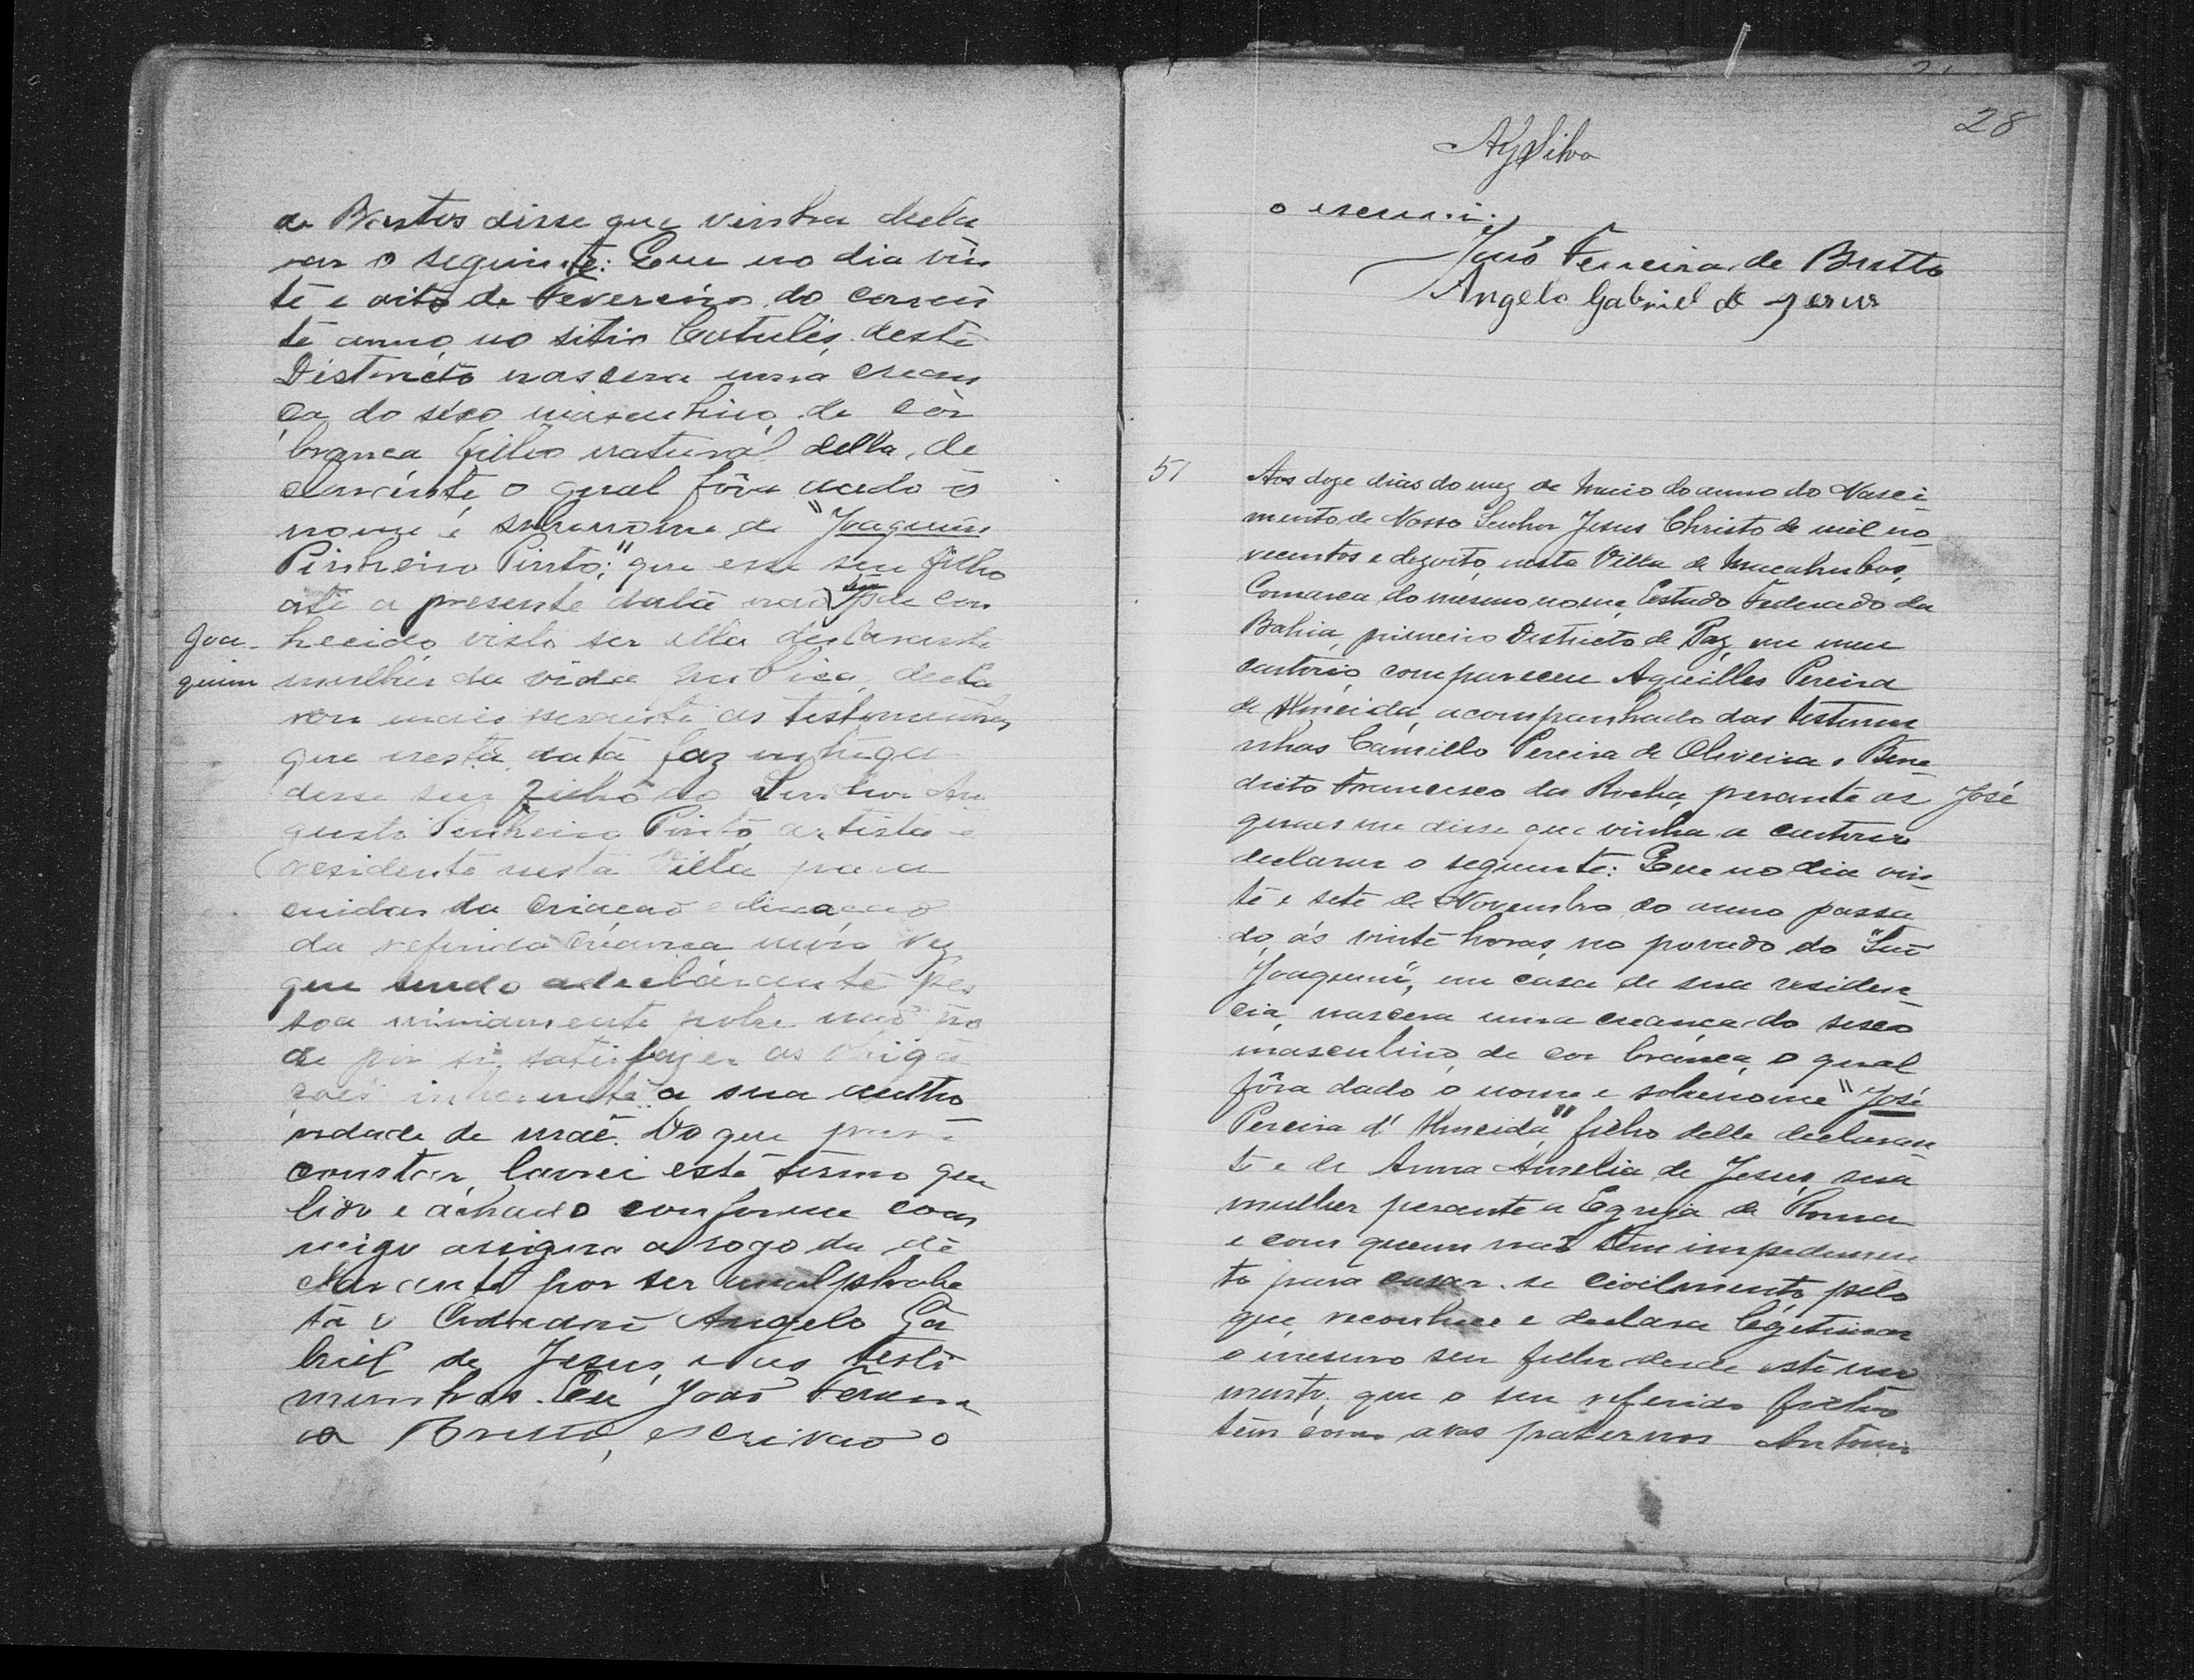 de Brittos disse que vinha decla
rar o seguinte: Que no dia vin
te e oito de Fevereiro do corren
te anno no sitio Cutulés, deste
Districto nascera uma crean
ça do sexo masculino, de côr
branca filho natural della, de
clarante, o qual fôra dado o
nome e sobrenome de "Joaquim
Pinheiro Pinto;" que esse seu filho
até a presente data não tem pae con
Joa- hecido visto ser ella declarante
quim mulher da vida publica, decla
rou mais perante as testemunhas
que nesta data faz entrega
desse seu filho ao Senhor Au
gusto Pinheiro Pinto, artista e
residente nesta Villa para
cuidar da criação e educação
da referida creança uma vez
que sendo a declarante pes
soa minimamente pobre não pó
de por si satisfazer as obriga
ções inherente a sua autho
ridade de mãe. Do que para
constar, lavrei este termo que
lido e achado conforme com
migo assigna a rogo da de
clarante por ser analphabe
ta o Cidadão Angelo Ga
briel de Jesus, e as teste
munhas. Eu João Ferreira
de Britto, escrivão o
28
AgSilva
o escrevi.
João Ferreira de Britto
Angelo Gabriel de Jesus
51 Aos doze dias do mez de Maio do anno do Nasci
mento de Nosso Senhor Jesus Christo de mil no
vecentos e dezoito, nesta Villa de Macahubas,
Comarca do mesmo nome, Estado Federado da
Bahia, primeiro Districto de Paz, em meu
cartorio, compareceu Aquilles Pereira
de Almeida, acompanhado das testemu
nhas Camillo Pereira de Oliveira e Bene
dicto Francisco da Rocha, perante as José
quaes me disse que vinha a cartorio
declarar o seguinte: Que no dia vin
te e sete de Novembro do anno passa
do, ás vinte horas, no povado do "São
Joaquim", em casa de sua residen
cia, nascera uma creança do sexo
masculino, de cor branca, o qual
fôra dado o nome e sobrenome "José
Pereira d'Almeida", filho delle declaran
te e de Anna Amelia de Jesus, sua
mulher perante a Egreja de Roma
e com quem não tem impedimen
to para casar-se civilmente, pelo
que, reconhece e declara legitimar
o mesmo seu filho desde este mo
mento; que o seu referido filho
tem como avós paternos Antonio